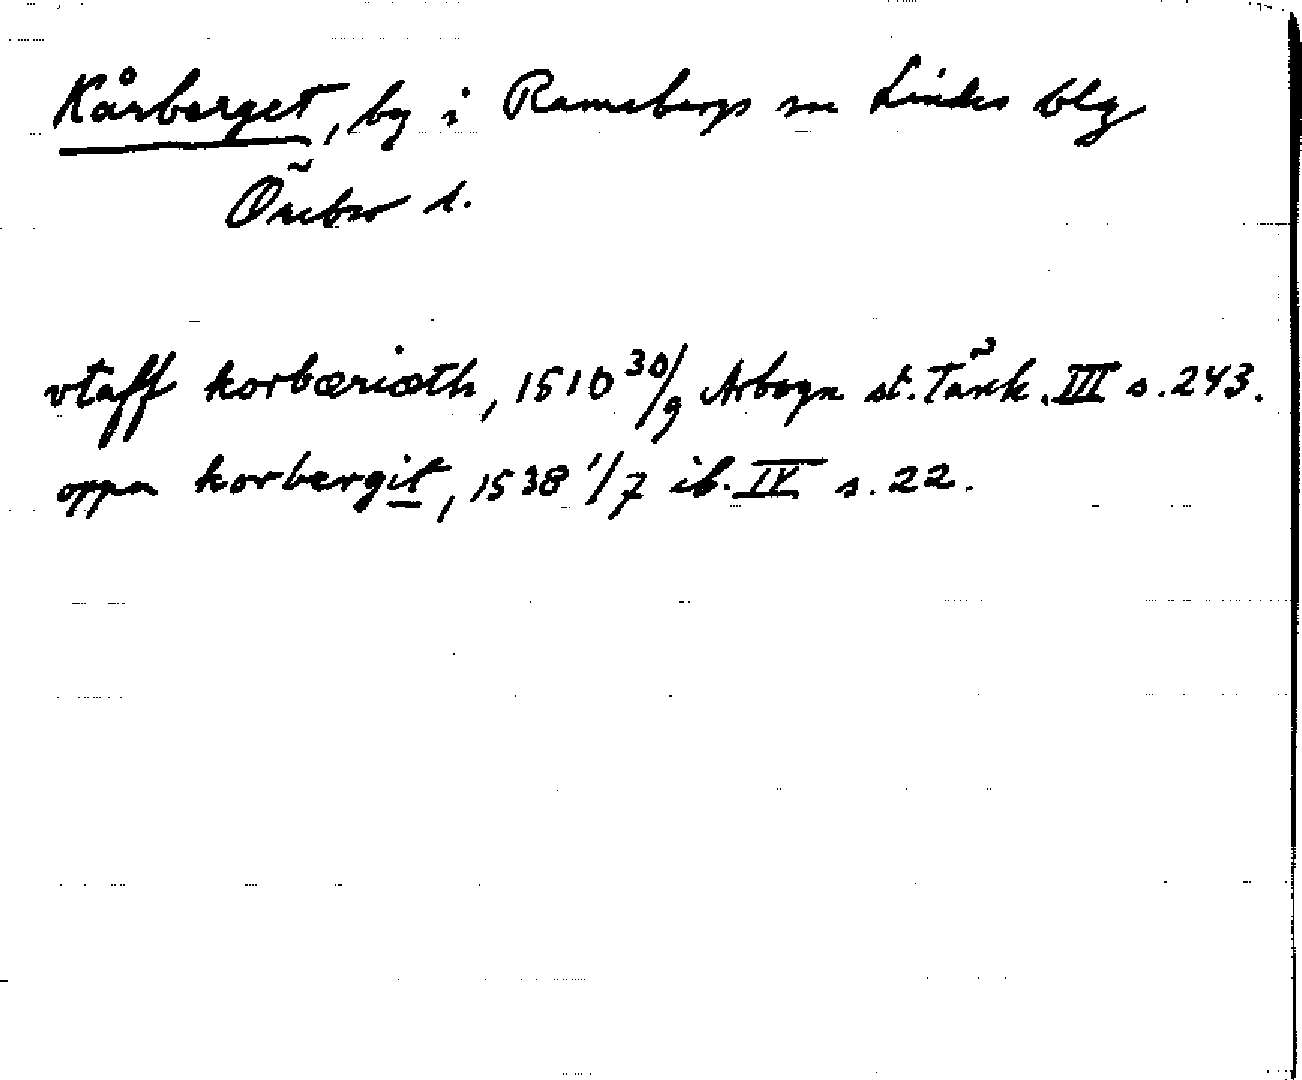 Kårberget, by i Ramsbergs sn Lindes blg
Örebro l.
vtaff korbæriæth, 1510 30/9 Arboga st. Tänk. III s. 243.
oppa korbergit, 1538 1/7 ib. IV s. 22.